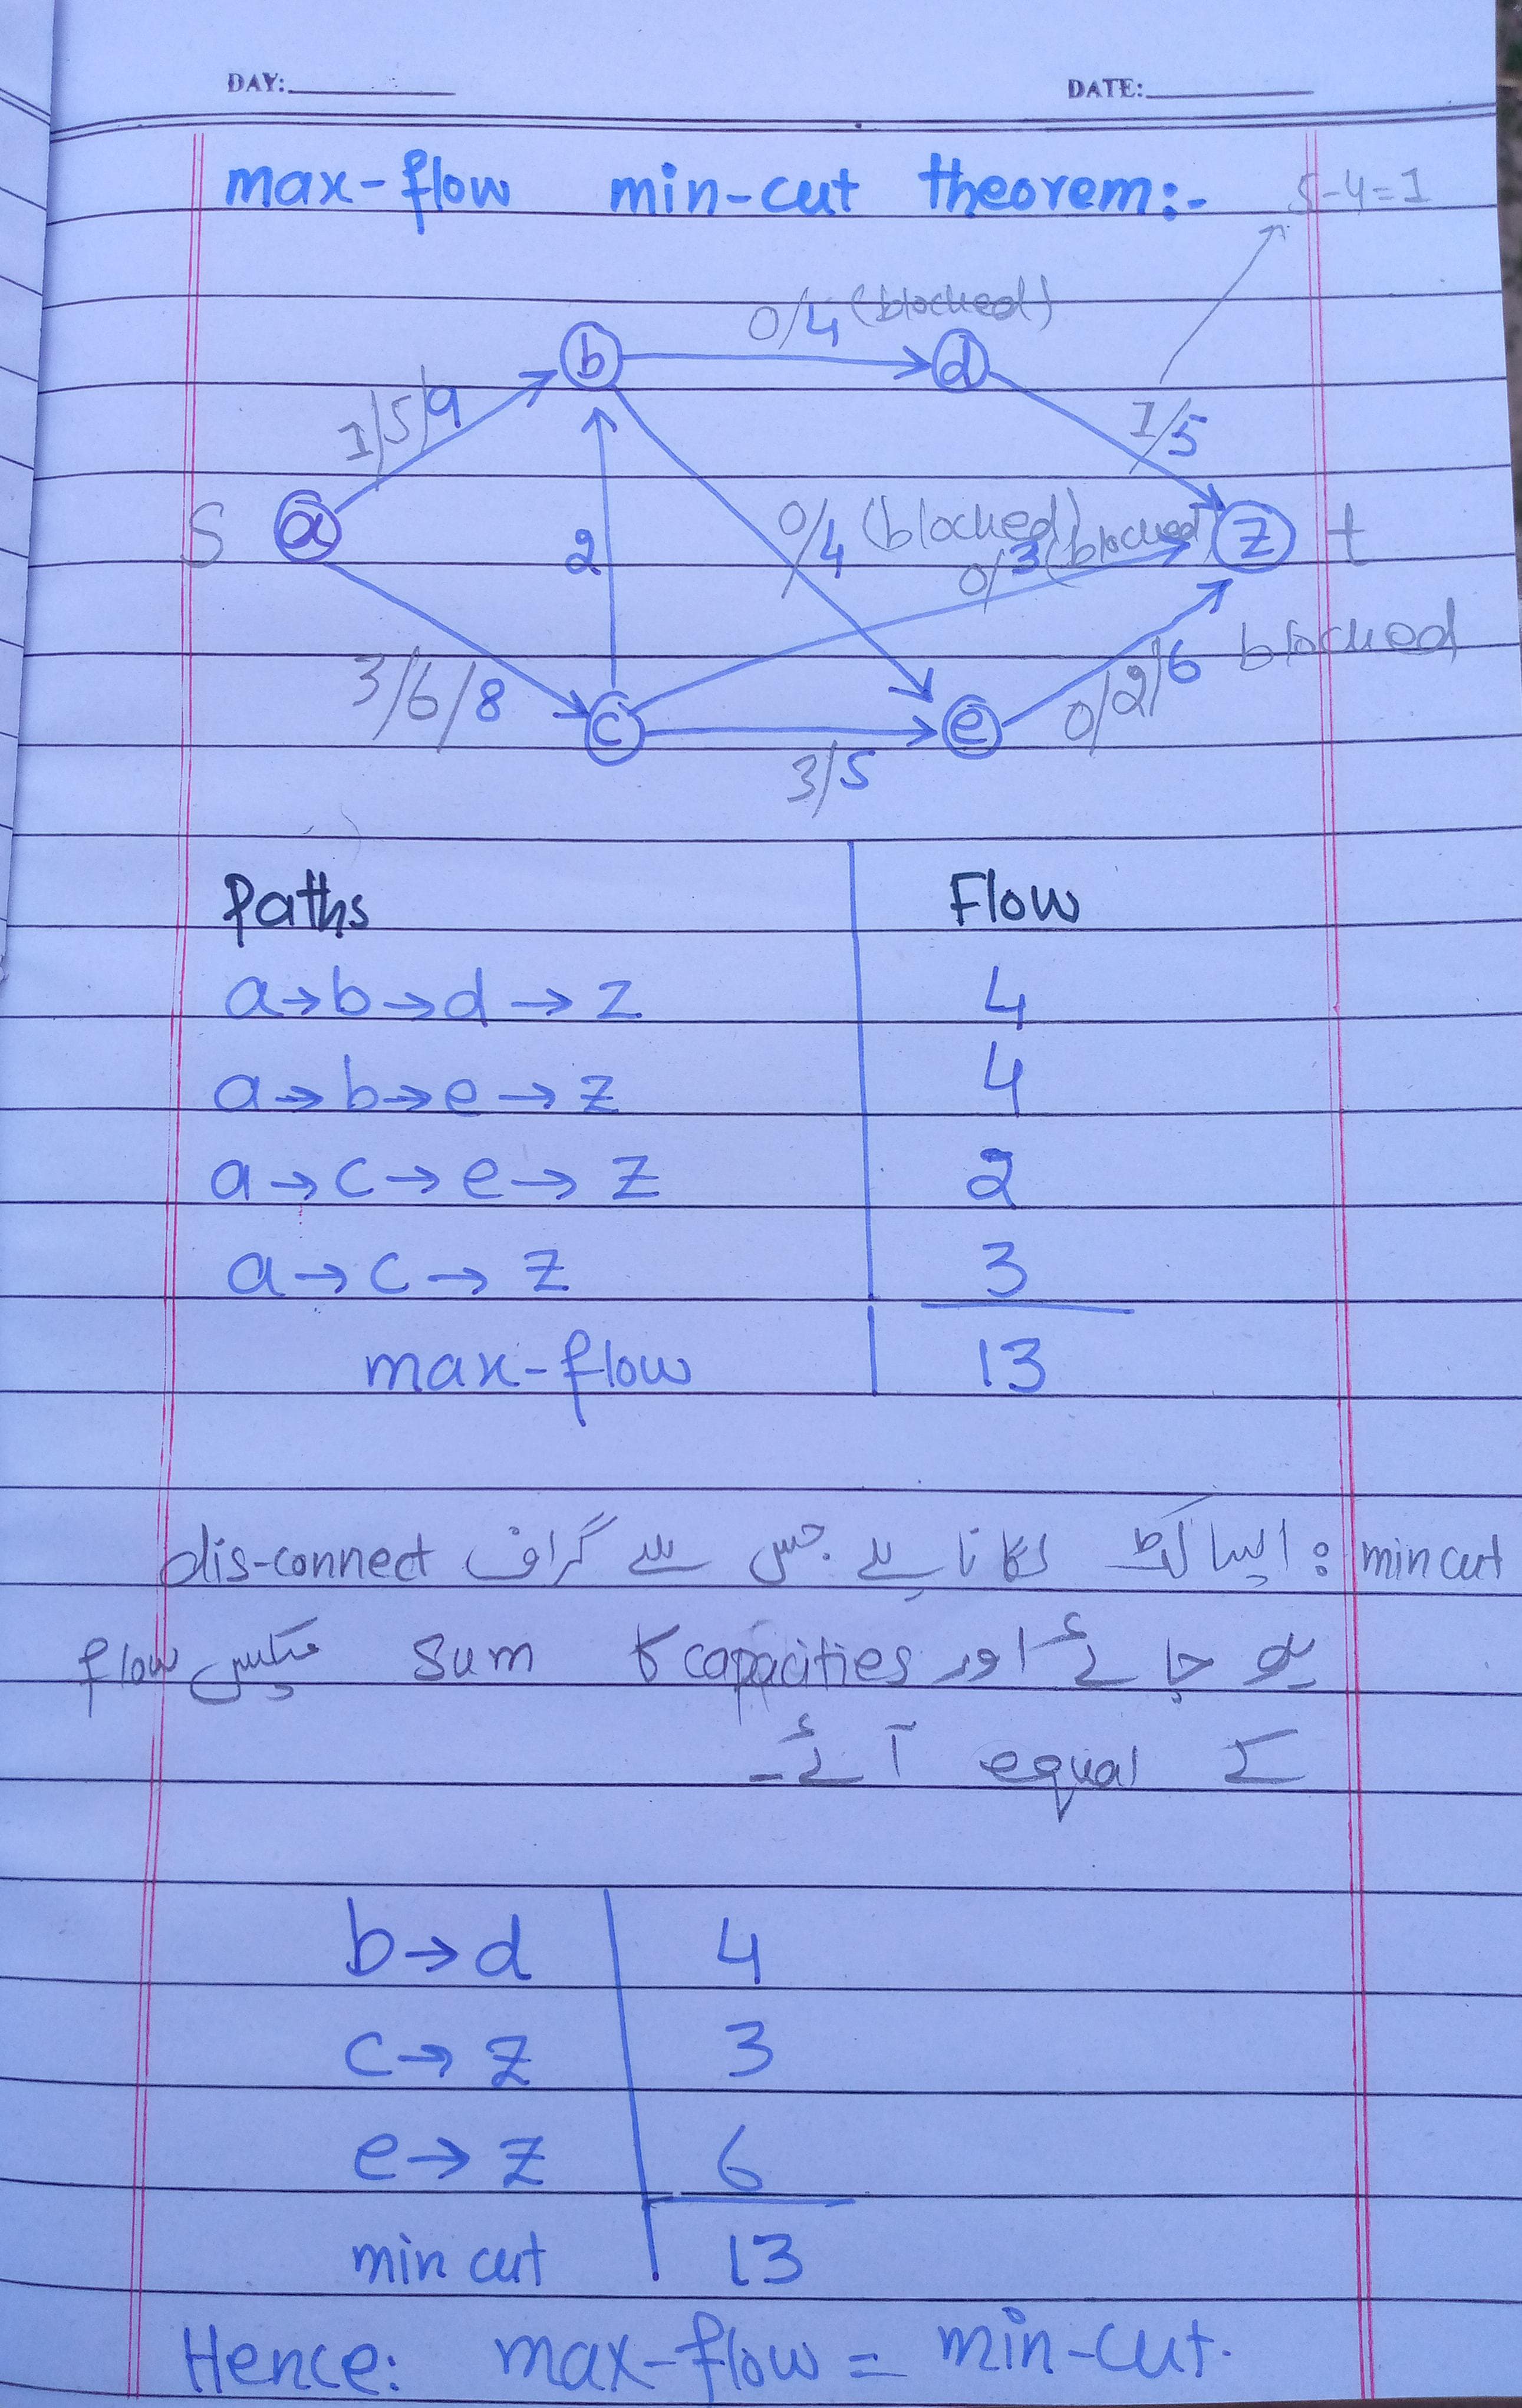 DAY:
DATE:
max-flow min-cut theorem:-
5-4=1
0/4 (blocked)
b
d
1/5/9
1/5
S
a
2
0/4 (blocked)
0/3 (blocked)
z
t
3/6/8
c
e
0/2/6 blocked
3/5
Paths Flow
a→b→d→z 4
a→b→e→z 4
a→c→e→z 2
a→c→z 3
max-flow 13
min cut : ایسا کٹ لگانا ہے جس سے گراف dis-connect
ہو جائے اور capacities کا sum میکس flow
کے equal آئے۔
b→d 4
c→z 3
e→z 6
min cut 13
Hence: max-flow = min-cut.